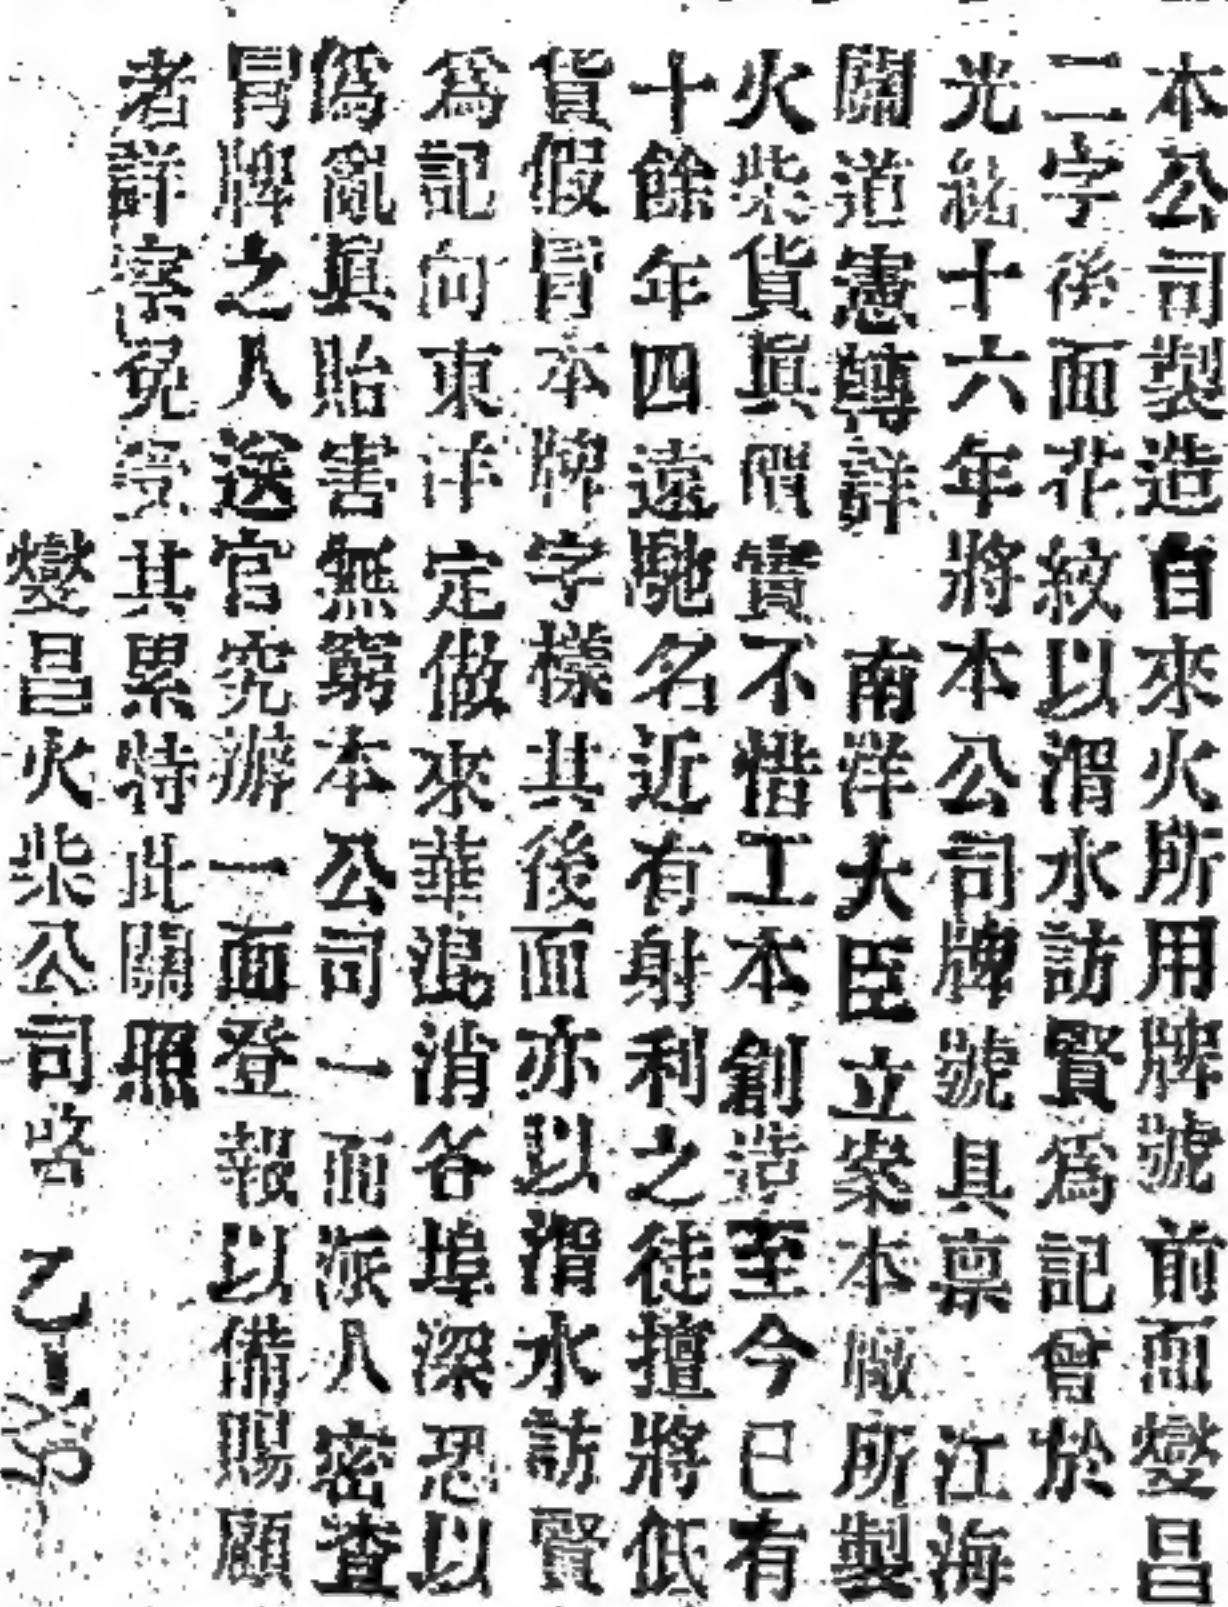 本公司製造自來火所用牌號前面燮昌
二字後面花紋以渭水訪賢爲記曾於
光緒十六年將本公司牌號具禀 江海
關道憲轉詳 南洋大臣立案本廠所製
火柴貨眞價實不惜工本創造至今已有
十餘年四遠馳名近有射利之徒擅將低
貨假冐本牌字樣其後面亦以渭水訪賢
爲記向東洋定做來華混消各埠深恐以
僞亂眞貽害無窮本公司一面派人密查
冐牌之人送官究辦一面登報以備賜顧
者詳察免受其累特此關照
燮昌火柴公司啓